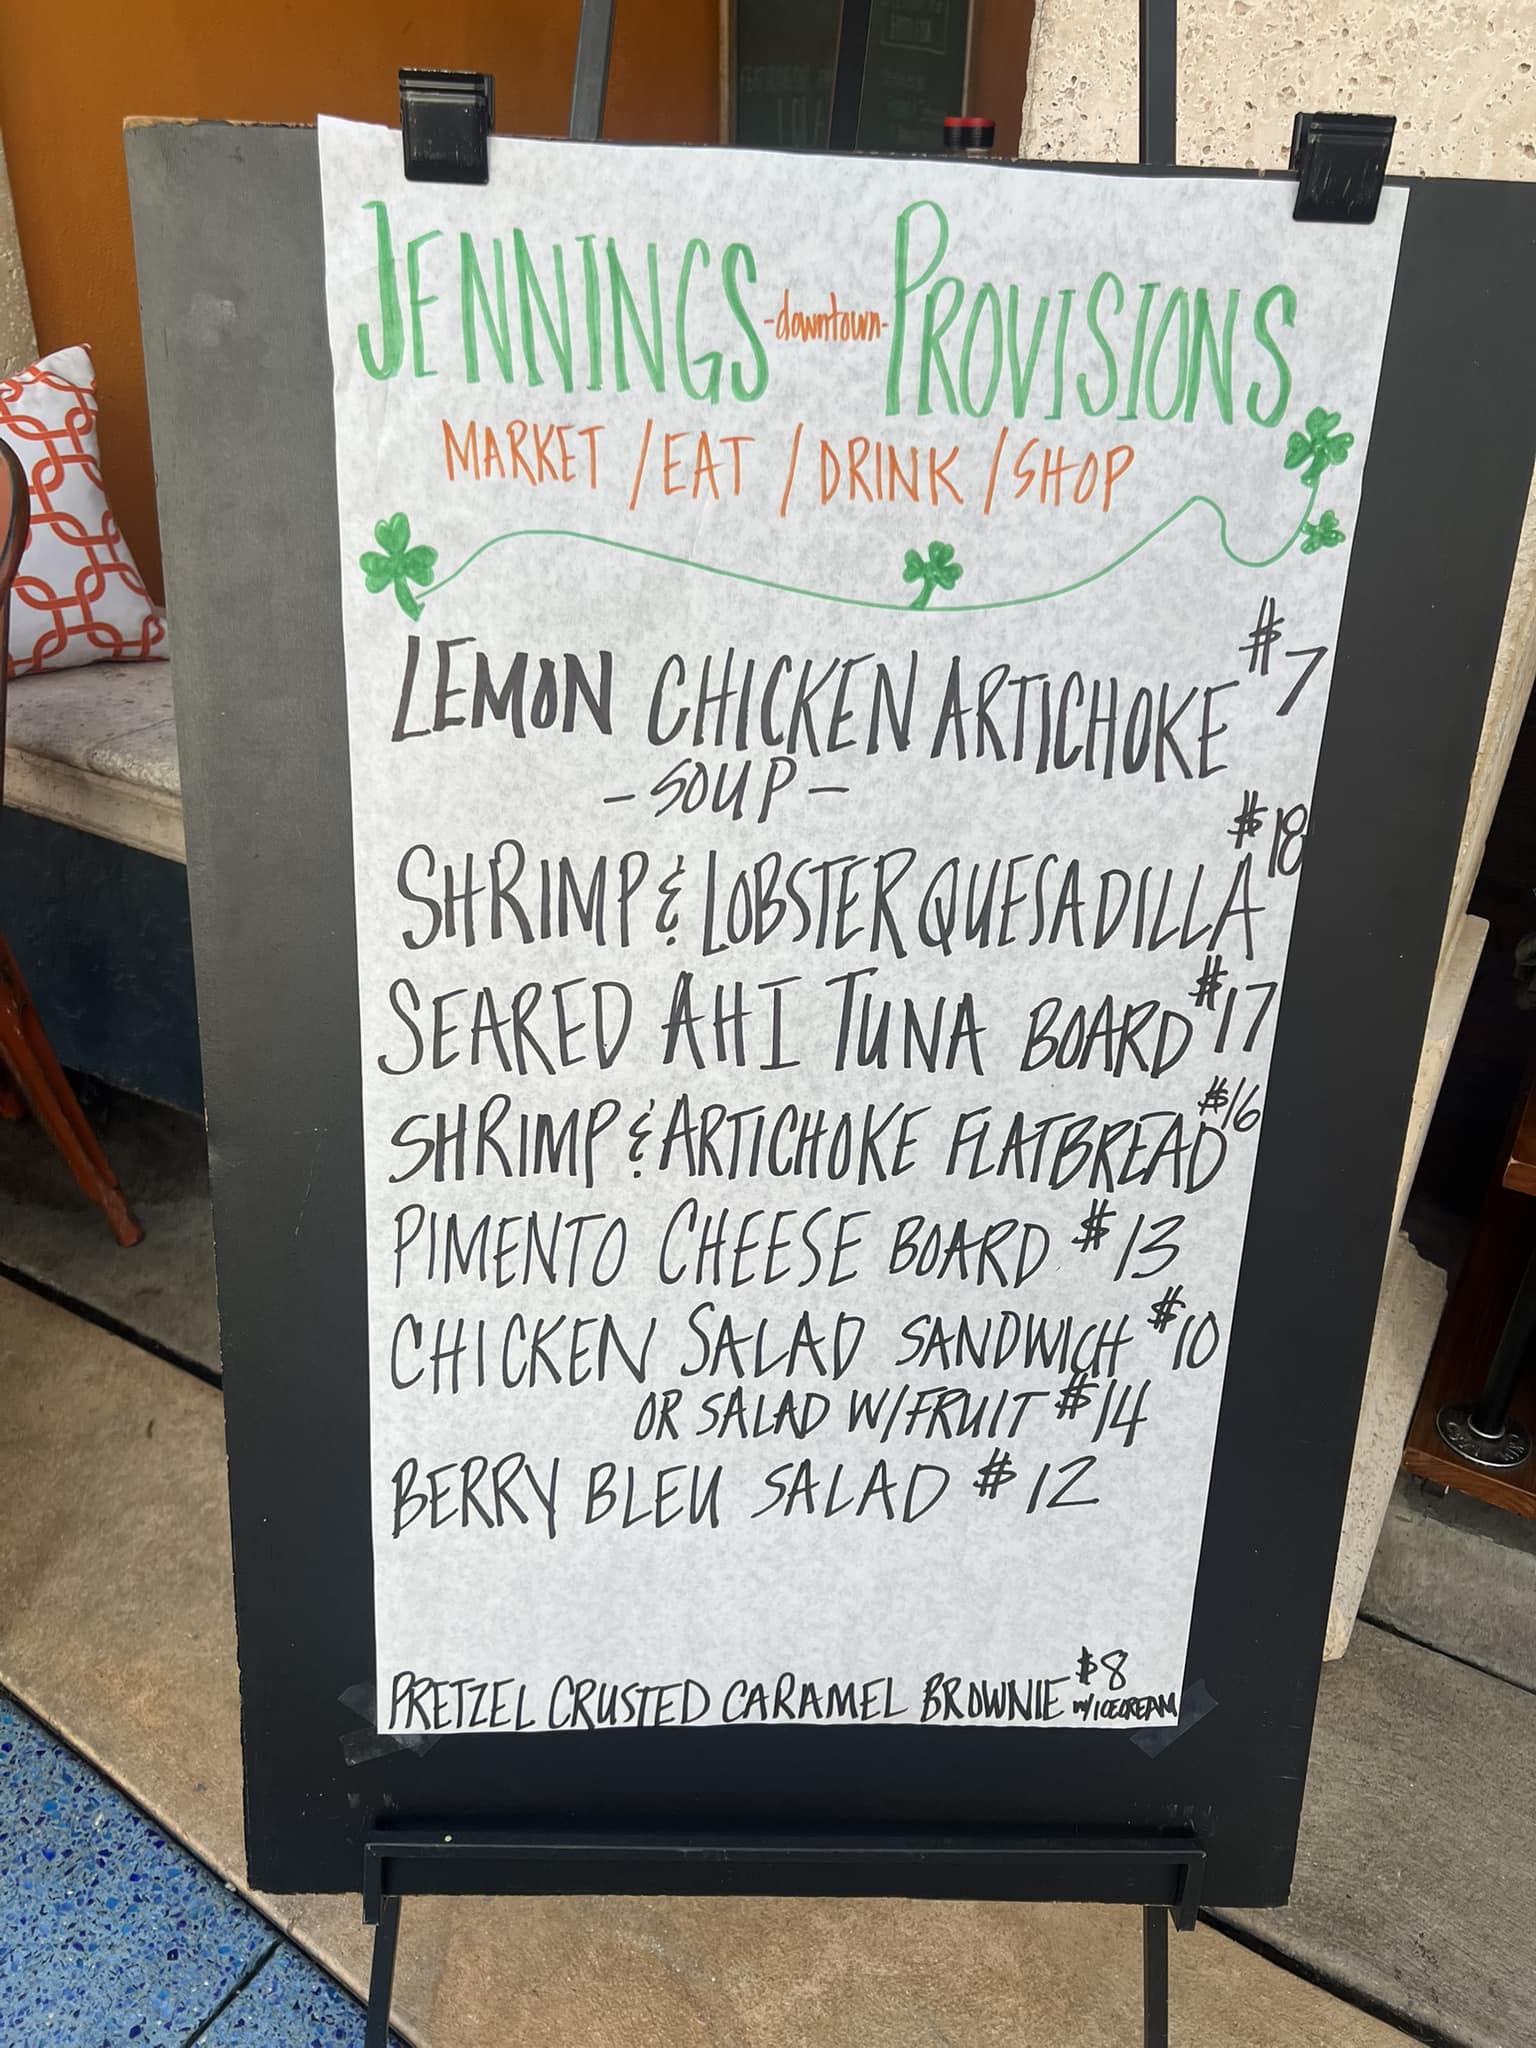 JENNINGS -downtown- PROVISIONS
MARKET / EAT / DRINK / SHOP
LEMON CHICKEN ARTICHOKE $7
- SOUP -
SHRIMP & LOBSTER QUESADILLA $18
SEARED AHI TUNA BOARD $17
SHRIMP & ARTICHOKE FLATBREAD $16
PIMENTO CHEESE BOARD $13
CHICKEN SALAD SANDWICH $10
OR SALAD W/FRUIT $14
BERRY BLEU SALAD $12
PRETZEL CRUSTED CARAMEL BROWNIE $8
W/ICECREAM